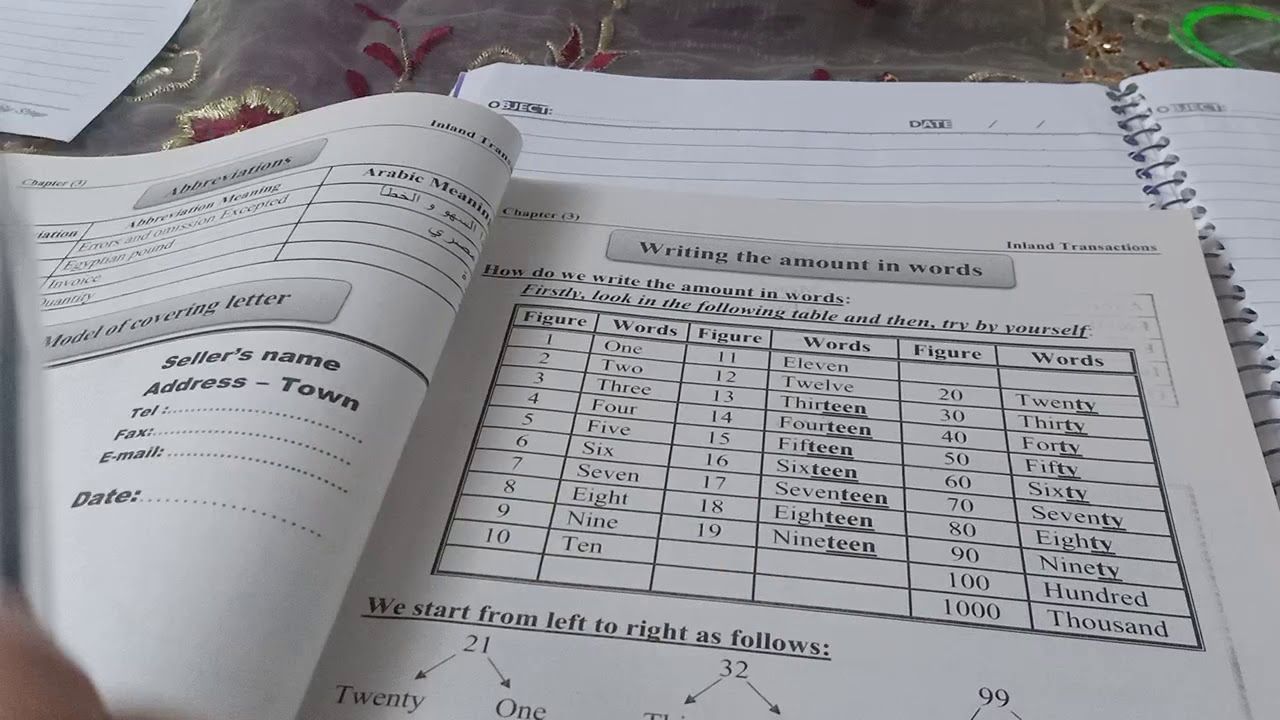 OBJECT:
DATE / /
OBJECT:
Chapter (3)
Abbreviations
Abbreviation Meaning Arabic Meanin
Errors and omission Excepted السهو و الخطأ
Egyptian pound
Invoice
Quantity
Model of covering letter
Seller's name
Address – Town
Tel :
Fax:
E-mail:
Date:
Chapter (3) Inland Transactions
Writing the amount in words
How do we write the amount in words:
Firstly, look in the following table and then, try by yourself:
Figure Words Figure Words Figure Words
1 One 11 Eleven
2 Two 12 Twelve 20 Twenty
3 Three 13 Thirteen 30 Thirty
4 Four 14 Fourteen 40 Forty
5 Five 15 Fifteen 50 Fifty
6 Six 16 Sixteen 60 Sixty
7 Seven 17 Seventeen 70 Seventy
8 Eight 18 Eighteen 80 Eighty
9 Nine 19 Nineteen 90 Ninety
10 Ten 100 Hundred
1000 Thousand
We start from left to right as follows:
21 32 99
Twenty One